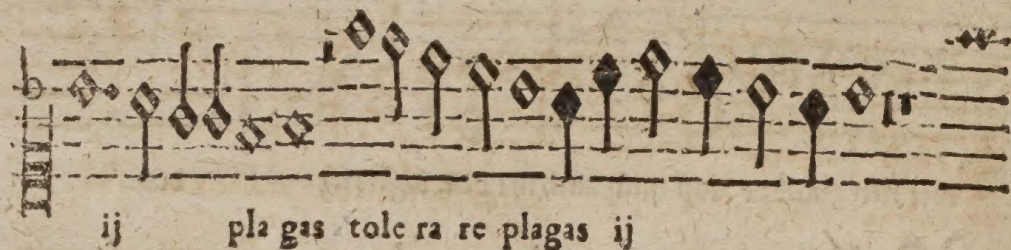 ij pla gas tole ra re plagas ij